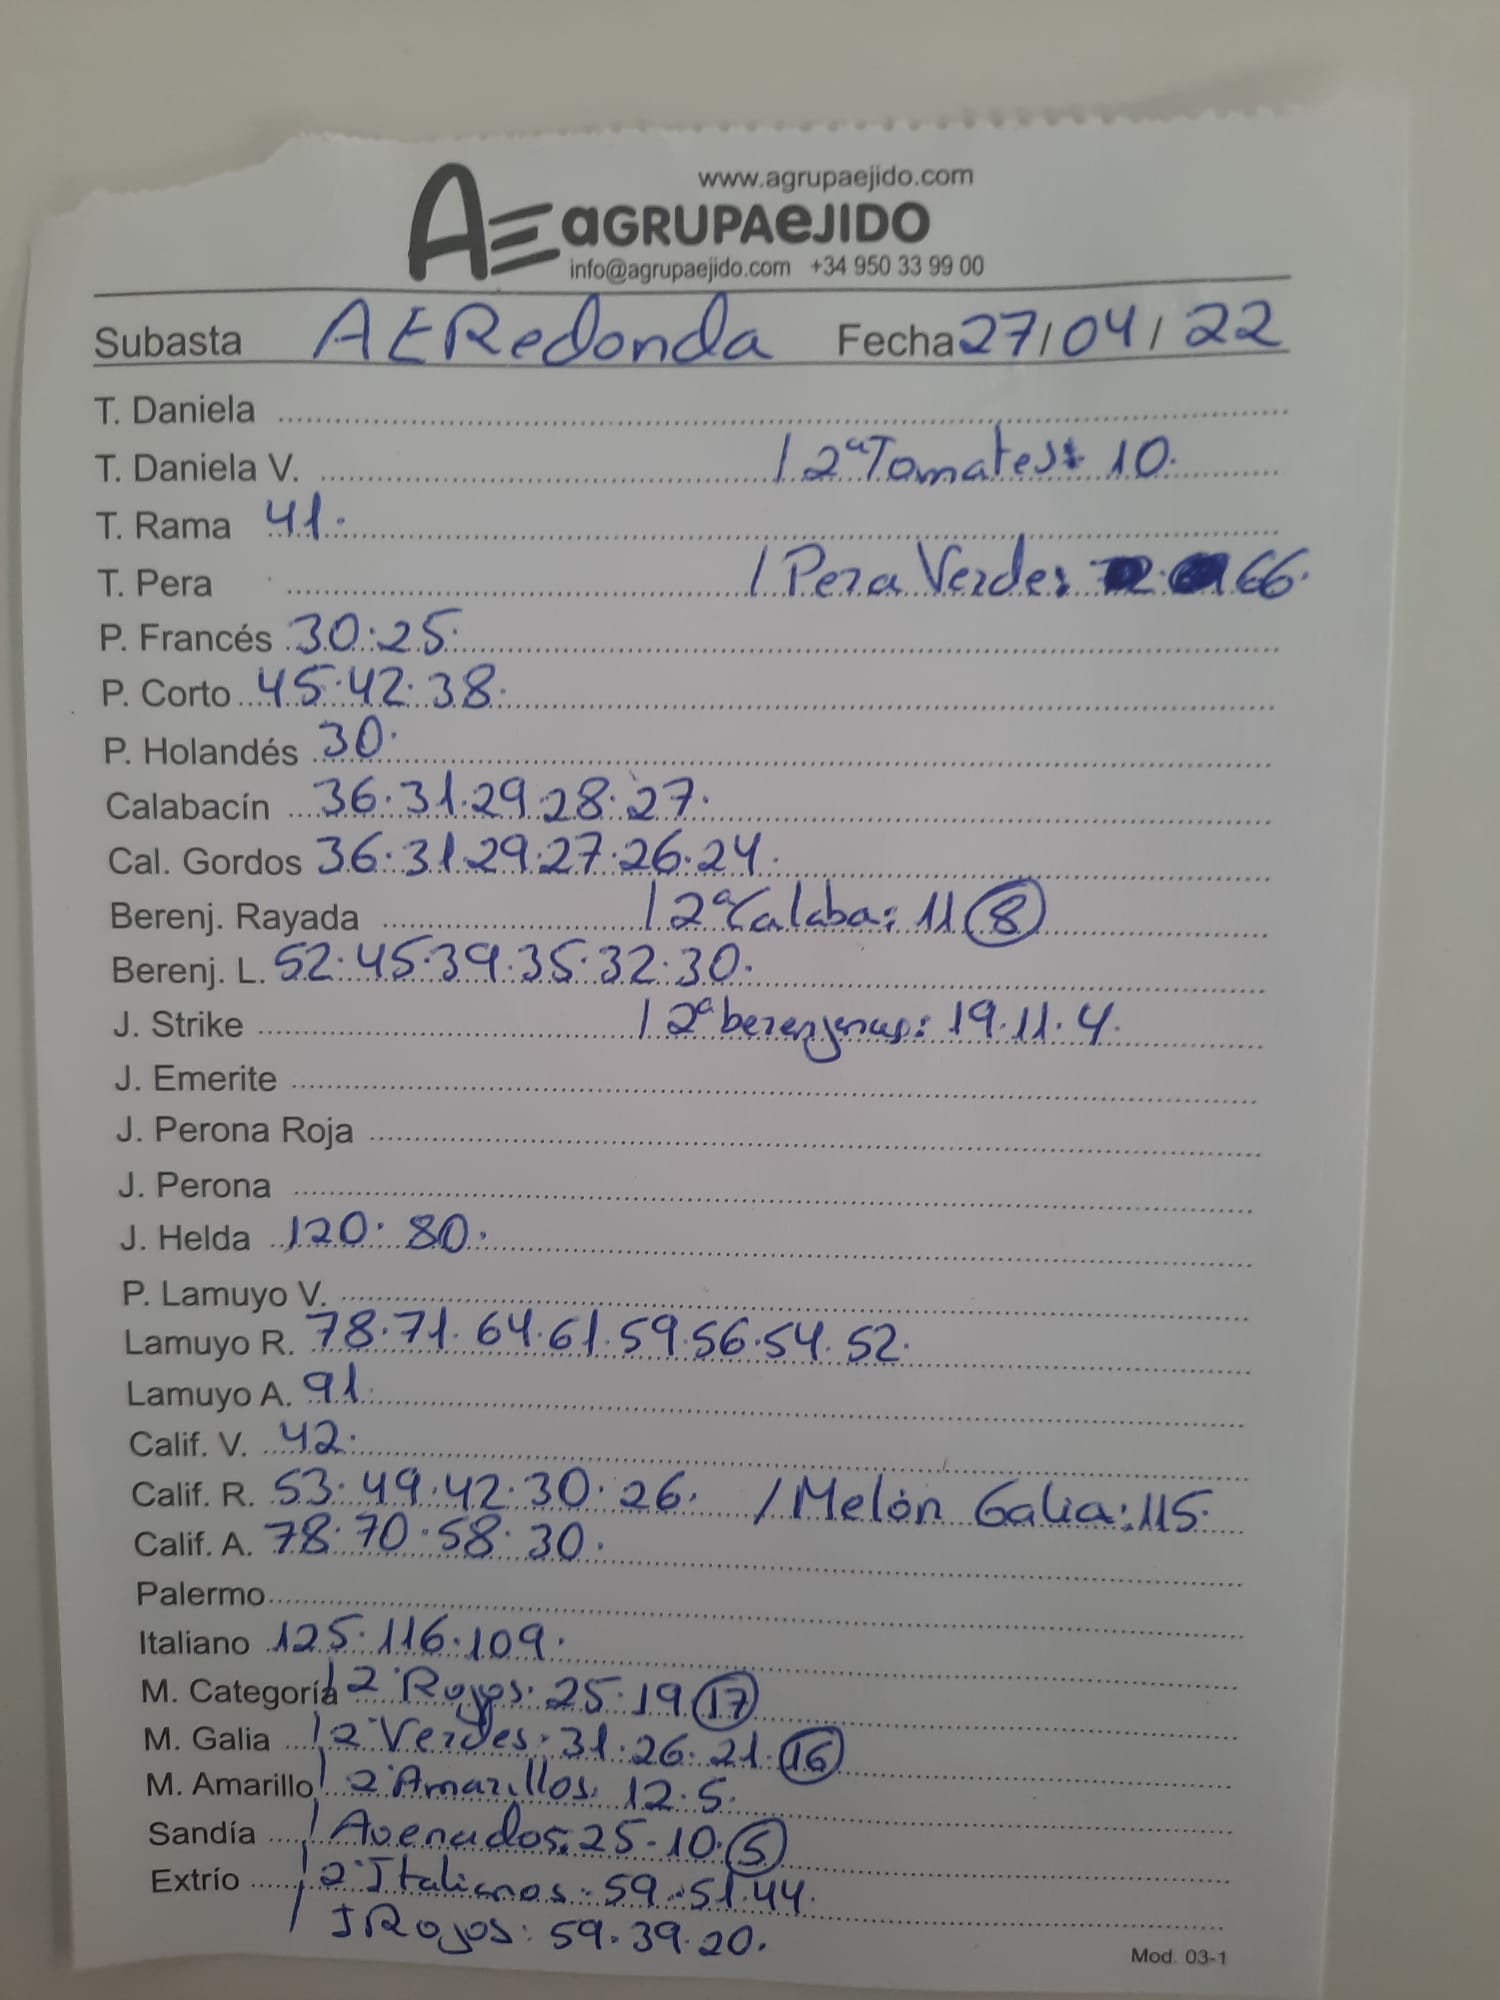 www.agrupaejido.com
AE aGRUPAeJIDO
info@agrupaejido.com +34 950 33 99 00
Subasta AERedonda Fecha 27/04/22
T. Daniela
T. Daniela V. / 2ª Tomates: 10.
T. Rama 41.
T. Pera / Pera Verde: 66.
P. Francés 30.25.
P. Corto 45.42.38.
P. Holandés 30.
Calabacín 36.31.29.28.27.
Cal. Gordos 36.31.29.27.26.24.
Berenj. Rayada / 2ª Calaba: 11 8
Berenj. L. 52.45.39.35.32.30.
J. Strike / 2ª berenjenas: 19.11.4.
J. Emerite
J. Perona Roja
J. Perona
J. Helda 120.80.
P. Lamuyo V.
Lamuyo R. 78.71.64.61.59.56.54.52.
Lamuyo A. 91.
Calif. V. 42.
Calif. R. 53.49.42.30.26. / Melón Galia: 115.
Calif. A. 78.70.58.30.
Palermo
Italiano 125.116.109.
M. Categoría / 2ª Rojos: 25.19.17
M. Galia / 2ª Verdes: 31.26.21.16
M. Amarillo / 2ª Amarillos: 12.5.
Sandía / Avenados: 25-10.5
Extrío / 2ª Italianos: 59.51.44.
/ IRojos: 59.39.20.
Mod. 03-1